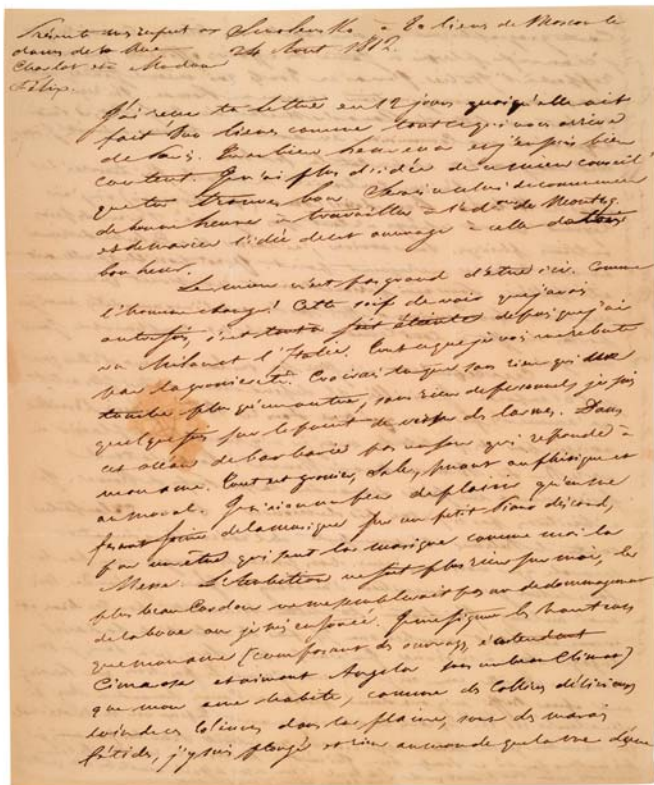 Présente mes respects aux
dames de la Rue
Charlot et à Madame
Félix.
Smolensk à 80 lieues de Moscou le
24 Aout 1812.
J'ai reçu ta lettre en 12 jours quoiqu'elle ait
fait lieues comme tout ce qui nous arrive
de Paris. Tu es bien heureux et j'en suis bien
content. Je n'ai plus d'idée de ce mien conseil
que tu trouves bon. celui de commencer
de bonne heure à travailler à l'éd.on de Montesq.
et de marier l'idée de cet ouvrage à celle de ton
bonheur.
Le mien n'est pas grand d'être ici. Comme
l'homme change! Cette soif de voir que j'avais
autrefois, s'est tout à fait éteinte depuis que j'ai
vu Milan et l'Italie. Tout ce que je vois me rebute
par la grossiereté. Croirais tu que sans rien qui me
touche plus qu'un autre, sans rien de personnel, je suis
quelquefois sur le point de verser des larmes. Dans
cet océan de barbarie pas un son qui réponde à
mon ame. Tout est grossier, sale, puant au phisique et
au moral. Je n'ai eu un peu de plaisir qu'en me
fesant faire de la musique sur un petit Piano discord,
par un être qui sent la musique comme moi la
Messe. L'Ambition ne fait plus rien sur moi, le
plus beau Cordon ne me semblerait pas un dedommagement
de la boue où je suis enfoncé. Je me figure les hauteurs
que mon ame (composant des ouvrages, entendant
Cimarosa et aimant Angela sous un beau Climat)
que mon ame habite, comme des Collines délicieuses
loin de ces Collines dans la plaine, sont des marais
fétides, j'y suis plongé et rien au monde que la vue d'une